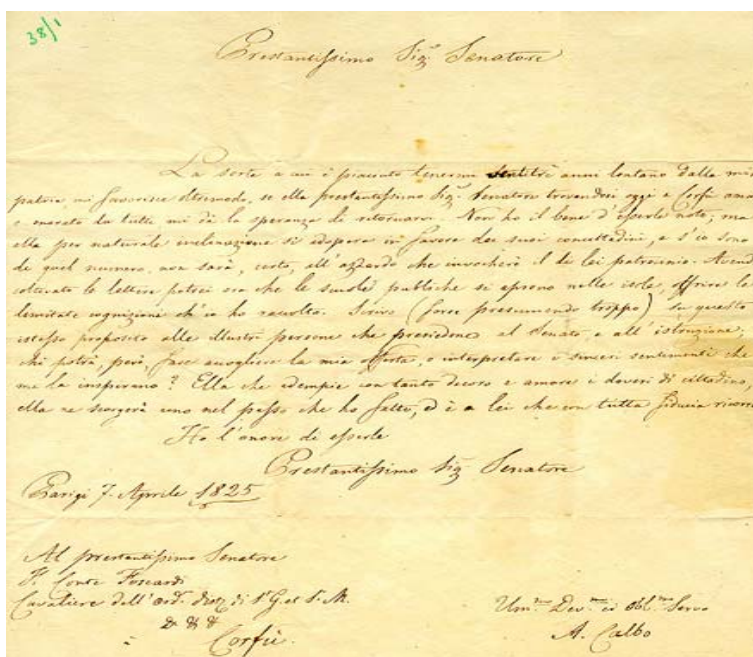 38/1
Prestantissimo Sigʳ Senatore
La sorte a cui è piaciuto tenermi ventitrè anni lontano dalla mia
patria, mi favorisce oltremodo, se ella prestantissimo Sigʳ Senatore trovandosi oggi a Corfù amato
e onorato da tutti mi dà la speranza di ritornarvi. Non ho il bene d'esserle noto; ma
ella per naturale inclinazione si adopera in favore dei suoi concittadini, e s'io sono
di quel numero, non sarà, certo, all'azzardo che invocherò il di lei patrocinio. Avendo
coltivato le lettere potrei ora che le scuole publiche si aprono nelle isole, offrire le
limitate cognizioni ch'io ho raccolto. Scrivo (forse presumendo troppo) su questo
istesso proposito alle illustri persone che presiedono al Senato, e all'istruzione;
chi potrà, però, fare accogliere la mia offerta, e interpretare i sinceri sentimenti che
me la inspirano? Ella che adempie con tanto decoro e amore i doveri di cittadino,
ella ne scorgerà uno nel passo che ho fatto, ed è a lei che con tutta fiducia ricorro
Ho l'onore di esserle
Prestantissimo Sigʳ Senatore
Parigi 7. Aprile 1825
Al prestantissimo Senatore
Conte Foscardi
Cavaliere dell'ord. di Sᵗ G. et S. M.
& & &
Corfù.
Umᵐᵒ Devᵐᵒ ed oblᵐᵒ Servo
A. Calbo